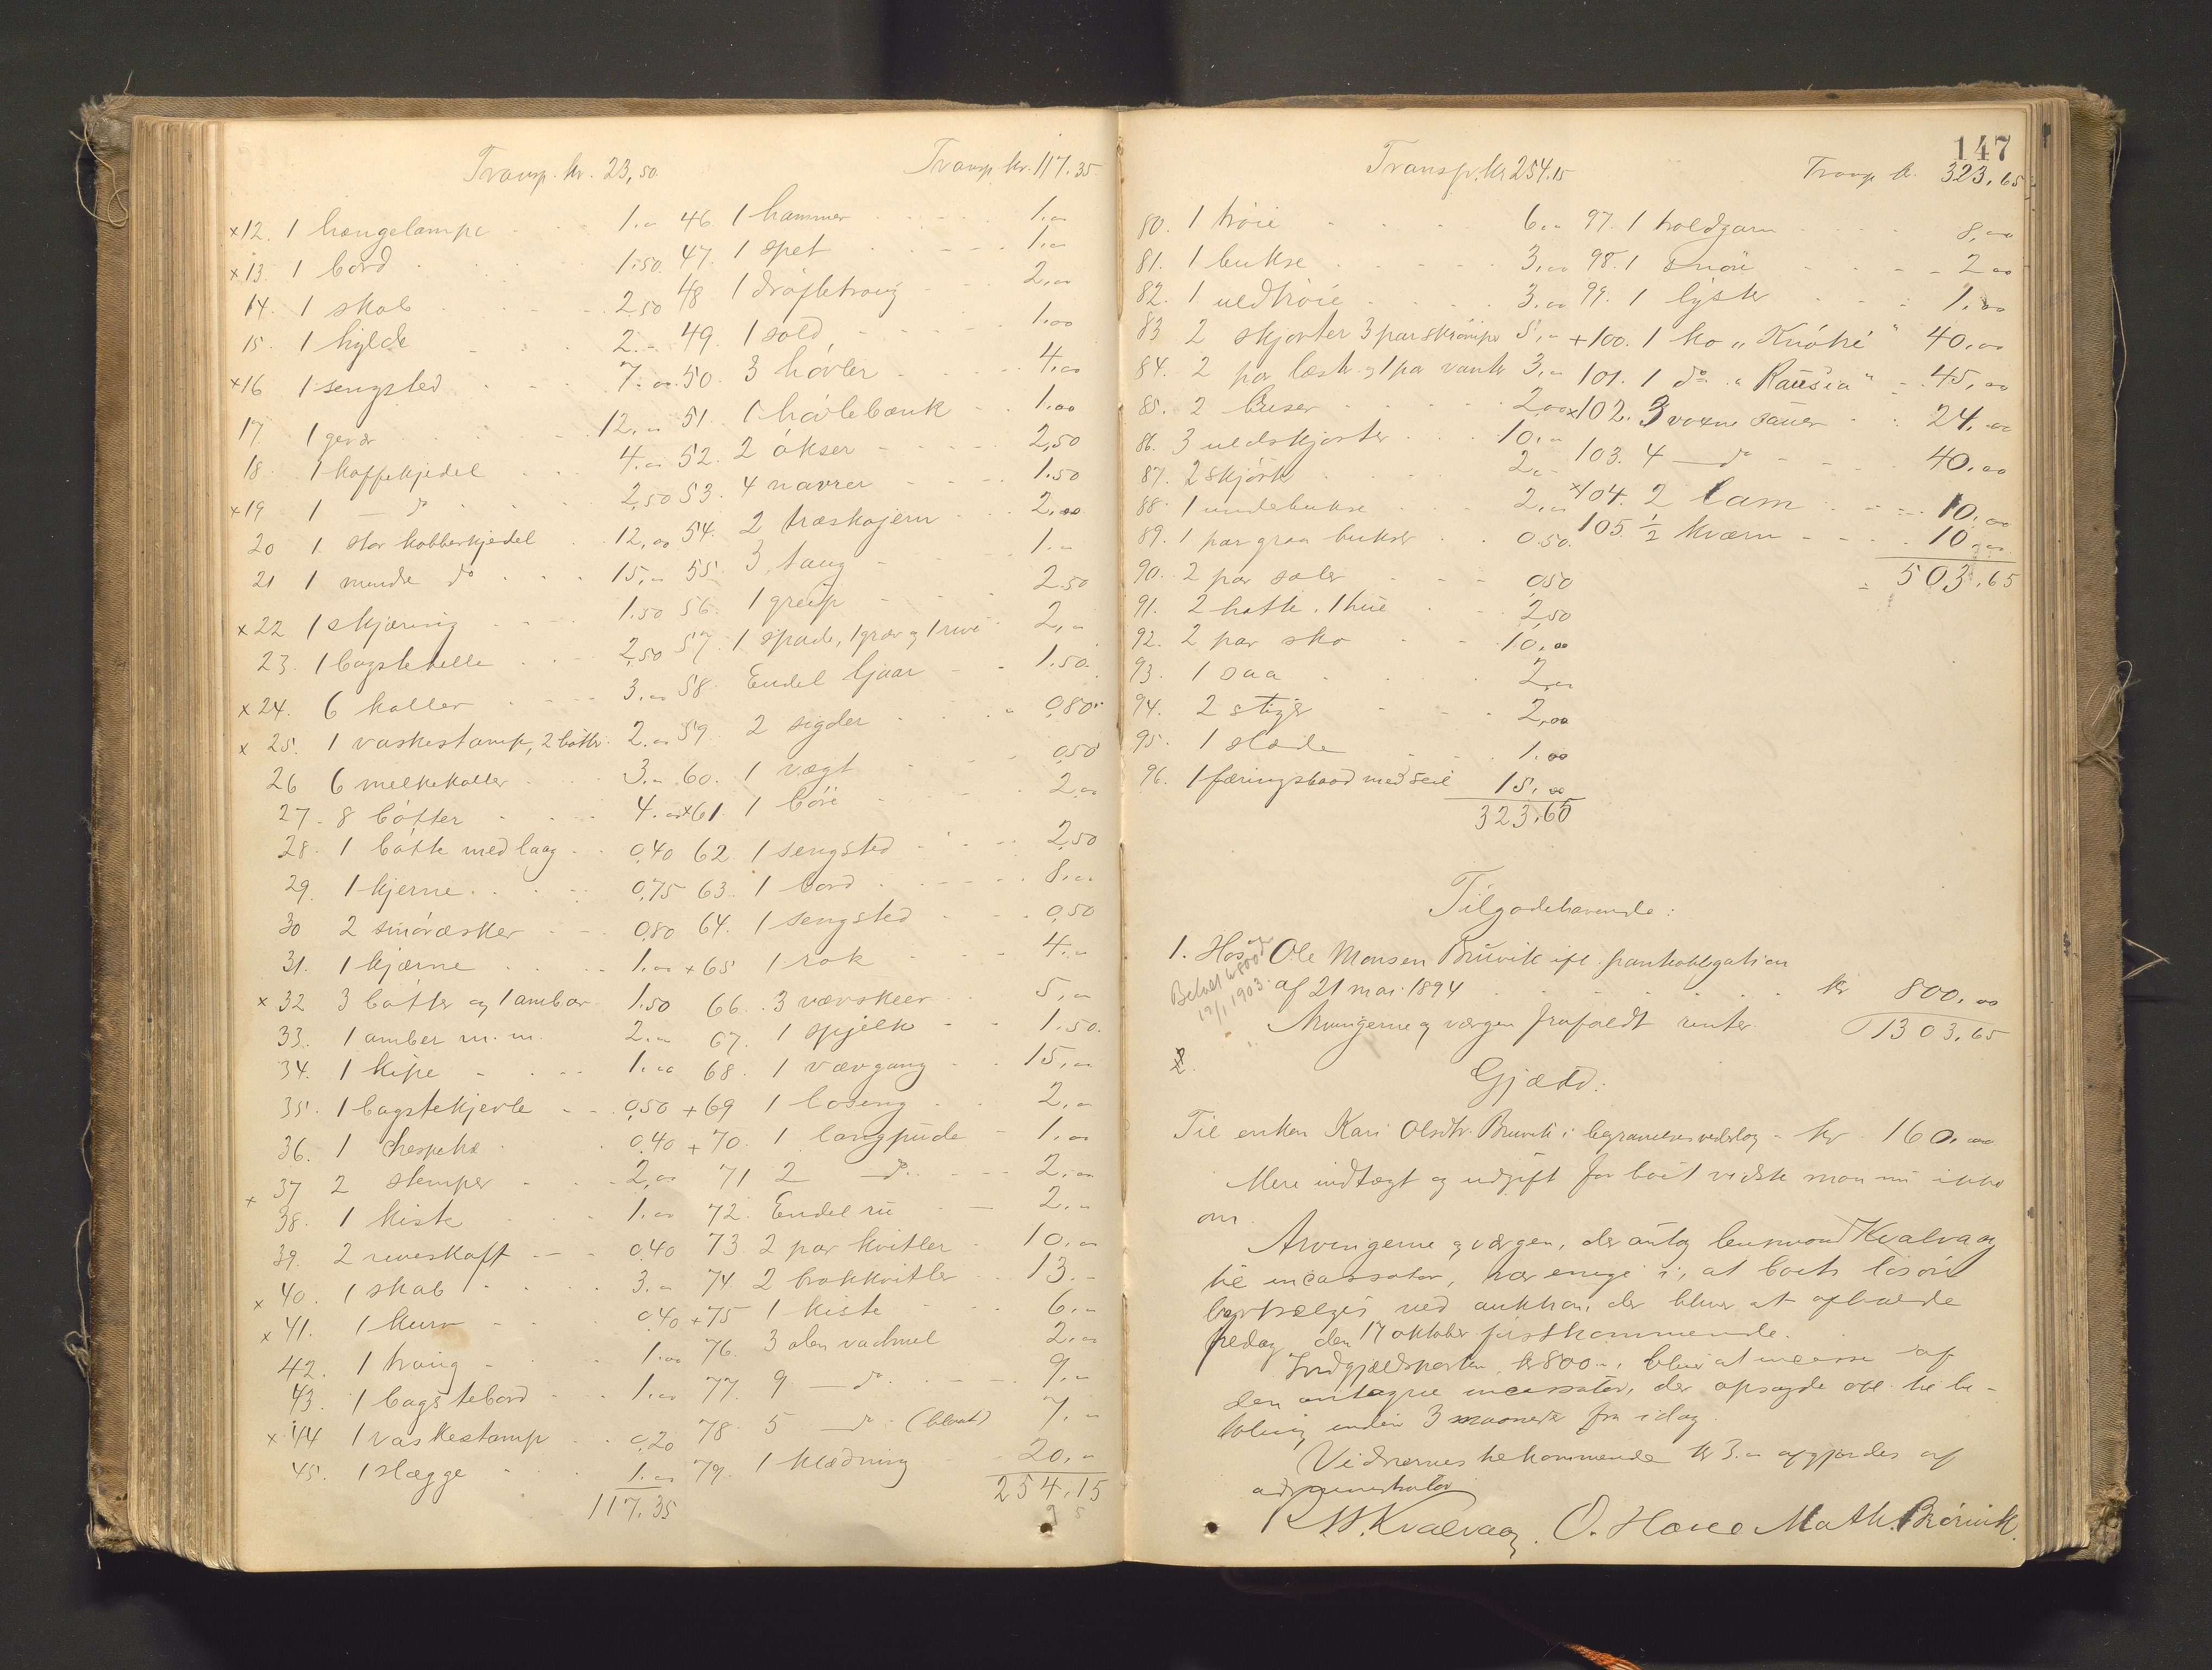 Transp. kr. 23,50
×12. 1 hængelampe 1.00
×13. 1 bord 1.50
14. 1 skab 2.50
15. 1 hylde 2.-
×16 1 sengsted 7.00
17. 1 gevær 12.00
18. 1 kaffekjedel 4.00
×19 1 — do 2,50
20 1 stor kobberkjedel 12,00
21 1 mindre do 15,00
×22 1 skjæring 1.50
23. 1 bagstehelle 2.50
×24. 6 koller 3.00
×25. 1 vaskestamp, 2 bøtter 2.00
26 6 melkekoller 3.00
27. 8 bøtter 4.00
28. 1 bøtte med laag 0,40
29. 1 kjerne 0,75
30 2 smøræsker 0,80
31. 1 kjærne 1.00
×32 3 bøtter og 1 ambar 1.50
33. 1 amber m.m. 2.00
34. 1 kipe 1.00
35. 1 bagstekjevle 0,50
36. 1 hespetræ 0.40
×37 2 stemper 2,00
38. 1 kiste 1.00
39. 2 riveskaft 0.40
×40. 1 skab 3.00
×41. 1 kurv 0,40
42. 1 traug 1.00
43. 1 bagstebord 1.00
×44 1 vaskestamp 0,20
45. 1 slægge 1.00
117.35
Transp kr. 117.35
46. 1 hammer 1.00
47. 1 spet 1.00
48 1 drøftetraug 2,00
49. 1 sold 1.00
50. 3 høvler 4,00
51. 1 høvlebænk 1.00
52. 2 økser 2,50
53. 4 navrer 1.50
54. 2 træskajern 2,00
55. 3 tang 1.00
56. 1 greip 2.50
57. 1 spade, 1 græv og 1 rive 2,00
58. Endel ljaar 1.50
59. 2 sigder 0,80
60. 1 vægt 0,50
×61. 1 børe 2,00
62. 1 sengsted 2,50
63. 1 bord 8.00
64. 1 sengsted 0,50
+65 1 rok 4.00
66. 3 vævskeer 5,00
67. 1 spjelk 1.50
68. 1 vævgang 15,00
+69 1 boseng 2,00
+70. 1 langpude 1,00
71 2 — do 2,00
72. Endel ru 2,00
73. 2 par kvitler 10.00
74. 2 brokkvitler 13.-
+75 1 kiste 6.00
76. 3 alen vadmel 2.00
77. 9 — do 9,00
78. 5 — do (blaat) 7,00
79. 1 klædning 20,00
254.15
147
Transp. kr 254.15
80. 1 trøie 6.00
81. 1 bukse 3,00
82. 1 uldtrøie 3.00
83 2 skjorter 3 par strømper 5,00
84. 2 par læster og 1 par vanter 3,00
85. 2 buser 2,00
86. 3 uldskjorter 10,00
87. 2 skjørt 2,00
88. 1 underbukse 2,00
89. 1 par graa bukser 0.50.
90. 2 par saler 0,50
91. 2 hatte, 1 hue 2,50
92. 2 par sko 10,00
93. 1 saa 2,00
94. 2 stiger 2,00
95. 1 slæde 1.00
96. 1 færingsbaad med seil 15,00
323.65
Transp kr. 323.65
97. 1 troldgarn 8,00
98. 1 snøre 2.00
99. 1 lyster 1.00
+100. 1 ko „Knøhi" 40,00
101. 1 do „Rausia" 45,00
×102. 3 voxne sauer 24,00
103. 4 — do 40.00
×104. 2 lam 10.00
105. ½ kværn 10.00
503.65
Tilgodehavende:
1. Hos Ole Monsen Bruvik ifl. panteobligation
af 21 mai 1894 kr 800.00
Betalt kr 800
19/1 1903.
Arvingerne og værgen frafaldt renter 1303.65
Gjæld:
Til enken Kari Olsdtr. Bruvik i begravelsesvederlag - kr 160.00
Mere indtægt og udgift for boet vidste man nu ikke
om.
Arvingerne og værgen, der antog lensmand Kvalvaag
til incassator, var enige i, at boets løsøre
bortsælges ved auktion, der bliver at afholde
fredag den 17 oktober førstkommende.
Jordgjældsposten, kr 800.-, bliver at incassere af
den antagne incassator, der opsagde oll. til be-
taling inden 3 maaneder fra idag.
Vidnernes tilkommende kr 3.00 afgjordes af
administrator
R M. Kvalvaag. O. Hove Math. Brørvik.